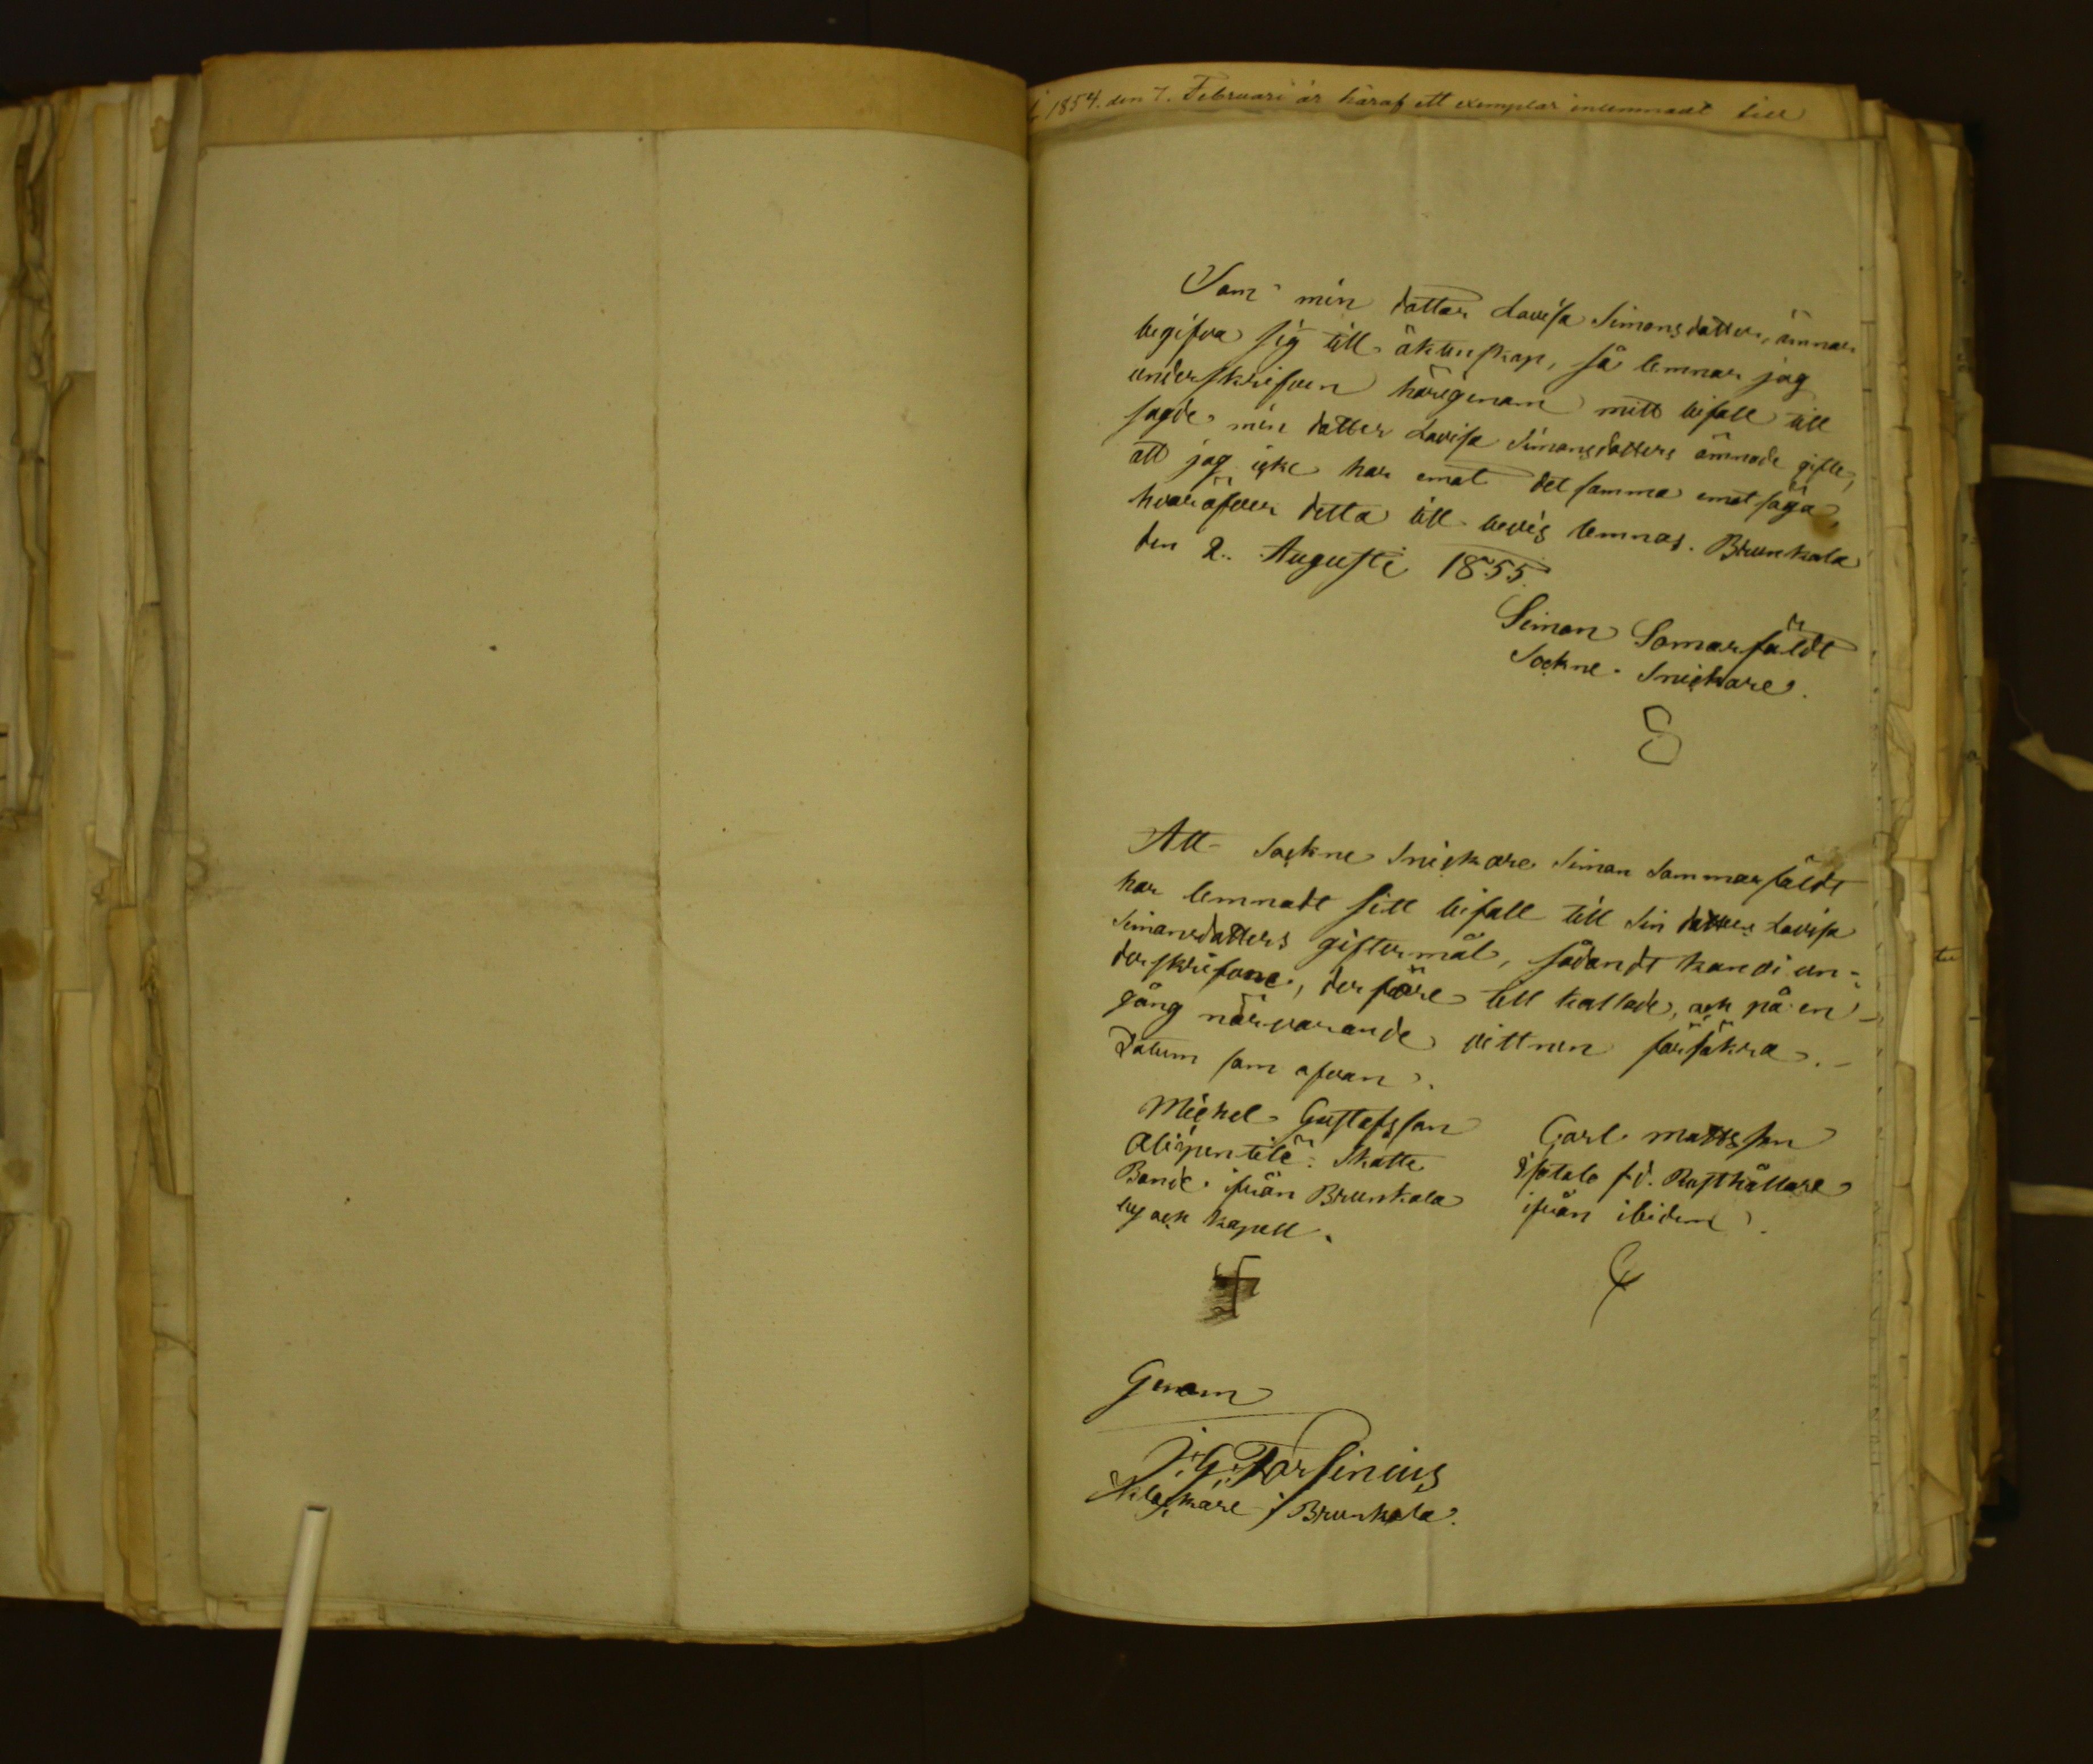 1854. den 7. Februari är häraf ett exemplar inlemnadt till
Som min dotter Lovisa Simonsdotter, ämnar
begifva sig till äktenskap, så lemnar jag
underskrifven härigenom mitt bifall till
sagde min dotter Lovisa Simonsdotters ämnade gifte,
att jag icke har emot det samma emot säga,
hvaröfver detta till bevis lemnas. Brunkala
den 2. Augusti 1855.
Simon Somarfäldt
Sockne-Snickare.
S
Att Sockne Snickare Simon Sommarfäldt
har lemnadt sitt bifall till sin dotters Lovisa
Simonsdotters giftermål, sådandt kan vi un-
derskrifvne, derföre till kallade, och på en
gång närvarande vittnen försäkra.
Datum som ofvan.
Michel Gustafsson
Alipentilä Skatte
Bonde ifrån Brunkala
by och kapell.
Carl Mattsson
Isotalo f.d. Rusthållare
ifrån ibidem.
Genom
J. G. Forsinius
Klockare i Brunkala.